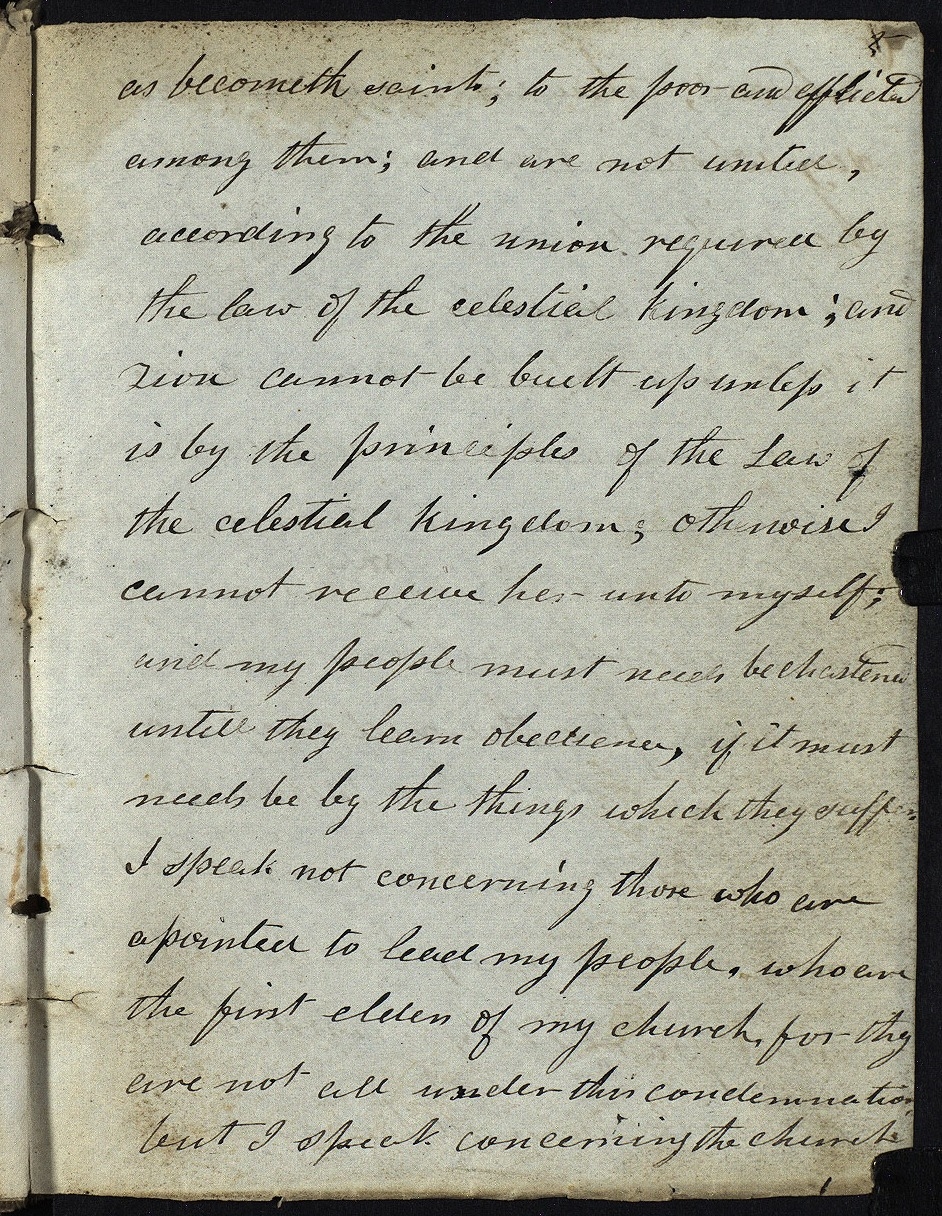 as becometh saints; to the poor and afflicted
among them; and are not united,
according to the union required by
the law of the celestial kingdom; and
Zion cannot be built up unless it
is by the principles of the Law of
the celestial kingdom; otherwise I
cannot receive her unto myself;
and my people must needs be chastened
untill they learn obedience, if it must
needs be by the things which they suffer.
I speak not concerning those who are
apointed to lead my people, who are
the first elders of my church, for they
are not all under this condemnation
but I speak concerning the church